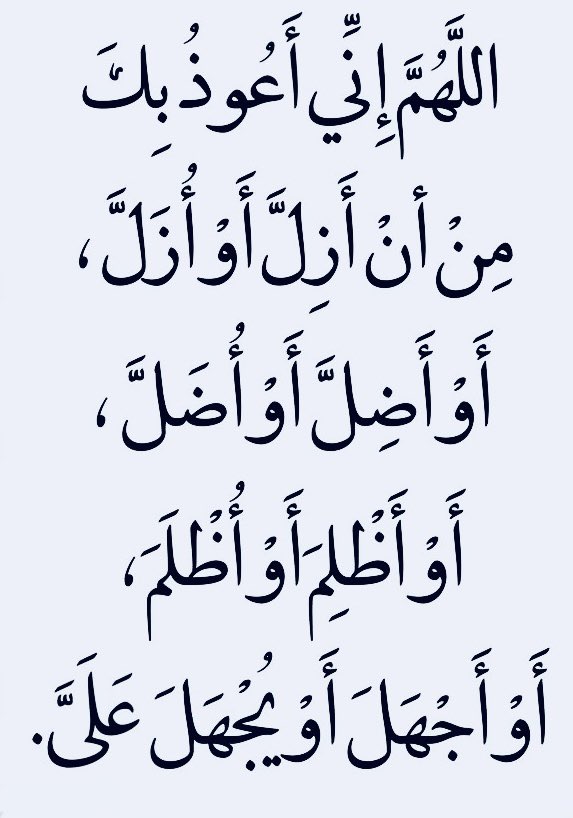 اللَّهُمَّ إِنِّي أَعُوذُ بِكَ
مِنْ أنْ أَزِلَّ أَوْ أُزَلَّ،
أَوْ أَضِلَّ أَوْ أُضَلَّ،
أَوْ أَظْلِمَ أَوْ أُظْلَمَ،
أَوْ أَجْهَلَ أَوْ يُجْهَلَ عَلَىَّ.